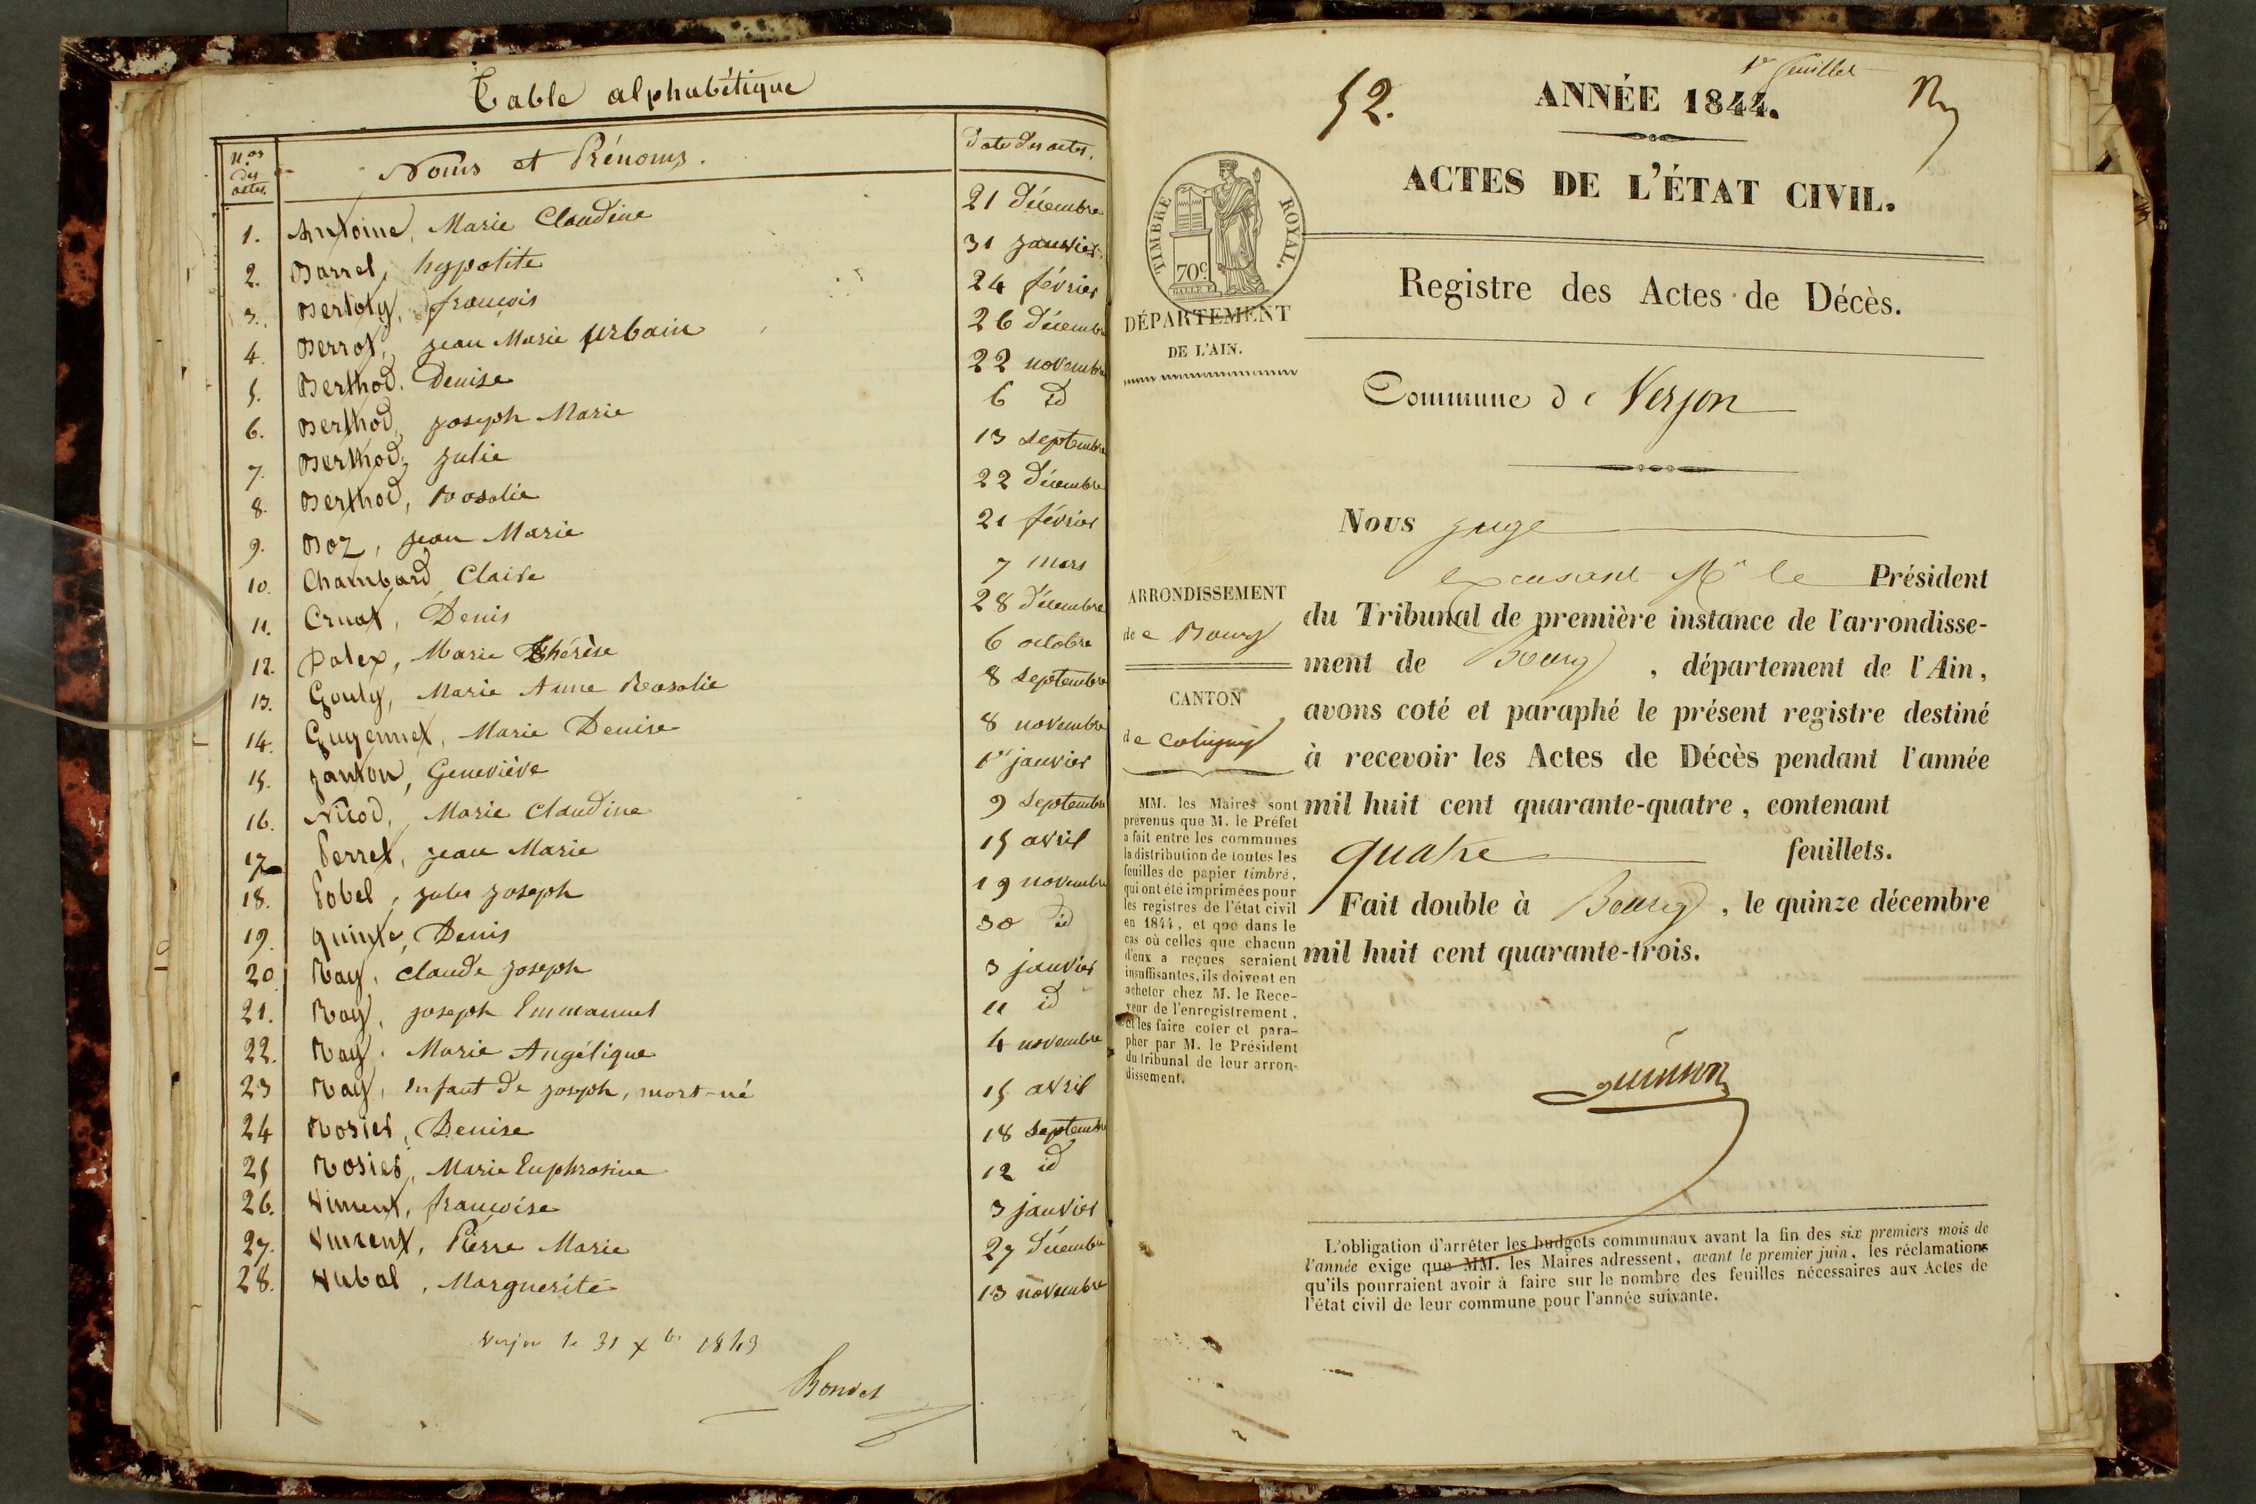 Table alphabétique
N.os des actes
Noms et Prénoms.
Date des actes.
1. Antoine, Marie Claudine 21 décembre
2. Barrel, hypolite 31 janvier
3. Bertoly, françois 24 février
4. Berrot, jean Marie Urbain 26 décembre
5. Berthod, Denise 22 novembre
6. Berthod, joseph Marie 6 id
7. Berthod, julie 13 septembre
8. Berthod, Rosalie 22 décembre
9. Boz, jean Marie 21 février
10. Chambard, Claire 7 mars
11. Cruat, Denis 28 décembre
12. Marie Thérèse 6 octobre
13. Gouly, Marie Anne Rosalie 8 septembre
14. Guyennet, Marie Denise 8 novembre
15. janton, Geneviève 1er janvier
16. Nicod, Marie Claudine 9 septembre
17 Perret, jean Marie 15 avril
18. Pobel, jules joseph 19 novembre
19. quinte, Denis 30 id
20. Ray, Claude joseph 3 janvier
21. Ray, joseph Emmanuel 11 id
22. Ray, Marie Angélique 4 novembre
23 Ray, enfant de joseph, mort-né 15 avril
24 Rosier, Denise 18 septembre
25 Rosier, Marie Euphrosine 12 id
26. Vincent, françoise 3 janvier
27. Vincent, Pierre Marie 27 décembre
28. Vubal, Marguerite 13 novembre
Verjon le 31 Xbre 1843
Bondet
1er feuillet
52.
ANNÉE 1844.
ACTES DE L'ÉTAT CIVIL.
TIMBRE ROYAL.
70c.
DÉPARTEMENT
DE L'AIN.
Registre des Actes de Décès.
Commune de Verjon
Nous juge
excusant Mr le Président
du Tribunal de première instance de l'arrondisse-
ment de Bourg, département de l'Ain,
avons coté et paraphé le présent registre destiné
à recevoir les Actes de Décès pendant l'année
mil huit cent quarante-quatre, contenant
quatre feuillets.
Fait double à Bourg, le quinze décembre
mil huit cent quarante-trois.
ARRONDISSEMENT
de Bourg
CANTON
de Coligny
MM. les Maires sont
prévenus que M. le Préfet
a fait entre les communes
la distribution de toutes les
feuilles de papier timbré,
qui ont été imprimées pour
les registres de l'état civil
en 1844, et que dans le
cas où celles que chacun
d'eux a reçues seraient
insuffisantes, ils doivent en
acheter chez M. le Rece-
veur de l'enregistrement,
et les faire coter et para-
pher par M. le Président
du tribunal de leur arron-
dissement.
L'obligation d'arrêter les budgets communaux avant la fin des six premiers mois de
l'année exige que MM. les Maires adressent, avant le premier juin, les réclamations
qu'ils pourraient avoir à faire sur le nombre des feuilles nécessaires aux Actes de
l'état civil de leur commune pour l'année suivante.